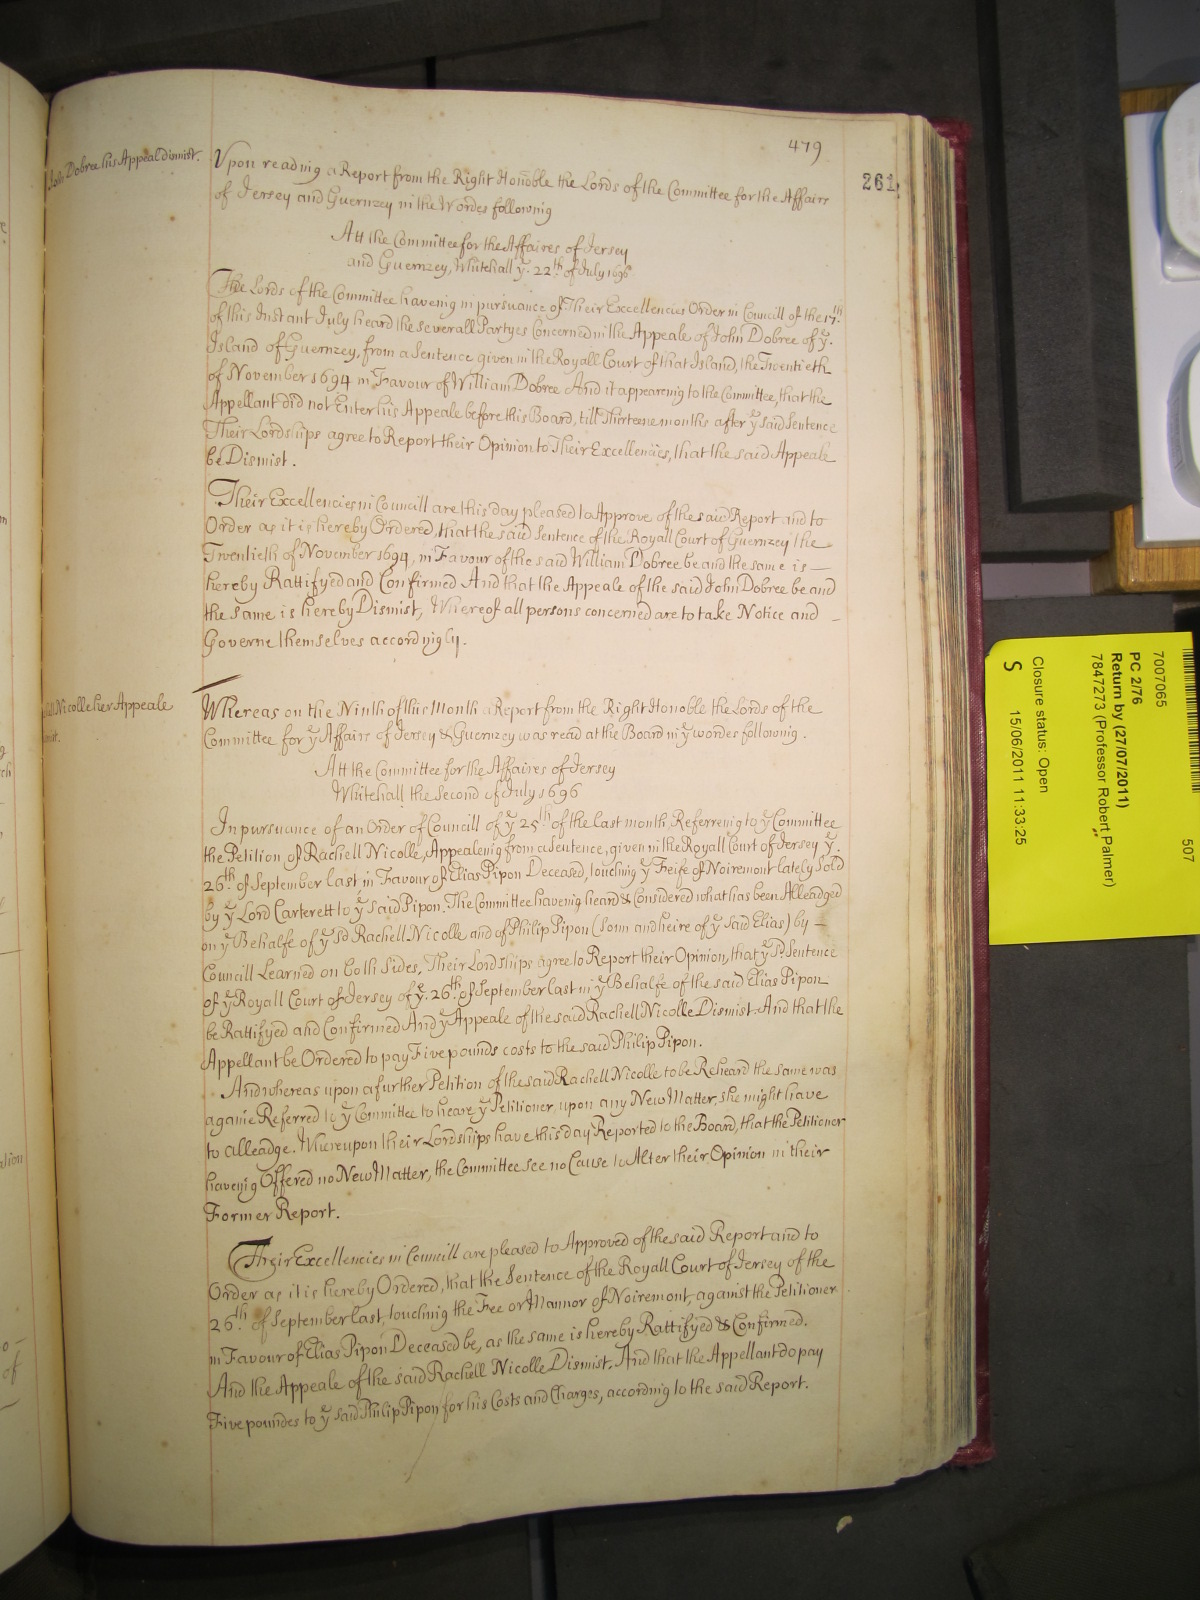 479
261
John Dobree his Appeal dismist.
Upon reading a Report from the Right Honoble the Lords of the Committee for the Affairs
of Jersey and Guernzey in the Wordes following
Att the Committee for the Affaires of Jersey
and Guernzey, Whitehall ye. 22th of July 1696
The Lords of the Committee haveing in pursuance of Their Excellencies Order in Councill of the 17th
of this Instant July heard the severall Partyes Concerned in the Appeale of John Dobree of ye.
Island of Guernzey, from a Sentence given in the Royall Court of that Island, the Twentieth
of November 1694 in Favour of William Dobree And it appearing to the Committee, that the
Appellant did not Enter his Appeale before this Board, till Thirteene months after ye said Sentence
Their Lordships agree to Report their Opinion to Their Excellencies, that the said Appeale
be Dismist.
Their Excellencies in Councill are this day pleased to Approve of the said Report and to
Order as it is hereby Ordered, that the said Sentence of the Royall Court of Guernzey the
Twentieth of November 1694, in Favour of the said William Dobree be and the same is —
hereby Rattifyed and Confirmed And that the Appeale of the said John Dobree be and
the same is hereby Dismist, Whereof all persons concerned are to take Notice and —
Governe themselves accordingly.
Nicolle her Appeale
Whereas on the Ninth of this Month a Report from the Right Honoble the Lords of the
Committee for ye Affairs of Jersey & Guernzey was read at the Board in ye wordes following.
Att the Committee for the Affaires of Jersey
Whitehall the Second of July 1696
In pursuance of an Order of Councill of ye 25th of the last month Referring to ye Committee
the Petition of Rachell Nicolle, Appealeing from a Sentence, given in the Royall Court of Jersey ye.
26th. of September last in Favour of Elias Pipon Deceased, touching ye Feife of Noiremont lately Sold
by ye Lord Carterett to ye said Pipon. The Committee haveing heard & Considered what has been Alleadged
on ye Behalfe of ye sd Rachell Nicolle and of Philip Pipon (Sonn and heire of ye said Elias) by —
Councill Learned on both Sides, Their Lordships agree to Report their Opinion, that ye sd. Sentence
of ye Royall Court of Jersey of ye. 26th. of September last in ye Behalfe of the said Elias Pipon
be Rattifyed and Confirmed And ye Appeale of the said Rachell Nicolle Dismist. And that the
Appellant be Ordered to pay Five pounds costs to the said Philip Pipon.
And whereas upon a further Petition of the said Rachell Nicolle to be Reheard the same was
againe Referred to ye Committee to heare ye Petitioner, upon any New Matter, she might have
to alleadge. Whereupon their Lordships have this day Reported to the Board, that the Petitioner
haveing Offered no New Matter, the Committee see no Cause to Alter their Opinion in their
Former Report.
Their Excellencies in Councill are pleased to Approved of the said Report and to
Order as it is hereby Ordered, that the Sentence of the Royall Court of Jersey of the
26th. of September last, touching the Fee or Mannor of Noiremont, against the Petitioner
in Favour of Elias Pipon Deceased be, as the same is hereby Rattifyed & Confirmed.
And the Appeale of the said Rachell Nicolle Dismist. And that the Appellant do pay
Five poundes to ye said Philip Pipon for his Costs and Charges, according to the said Report.
7007065
507
PC 2/76
Return by (27/07/2011)
7847273 (Professor Robert Palmer)
Closure status: Open
S
15/06/2011 11:33:25